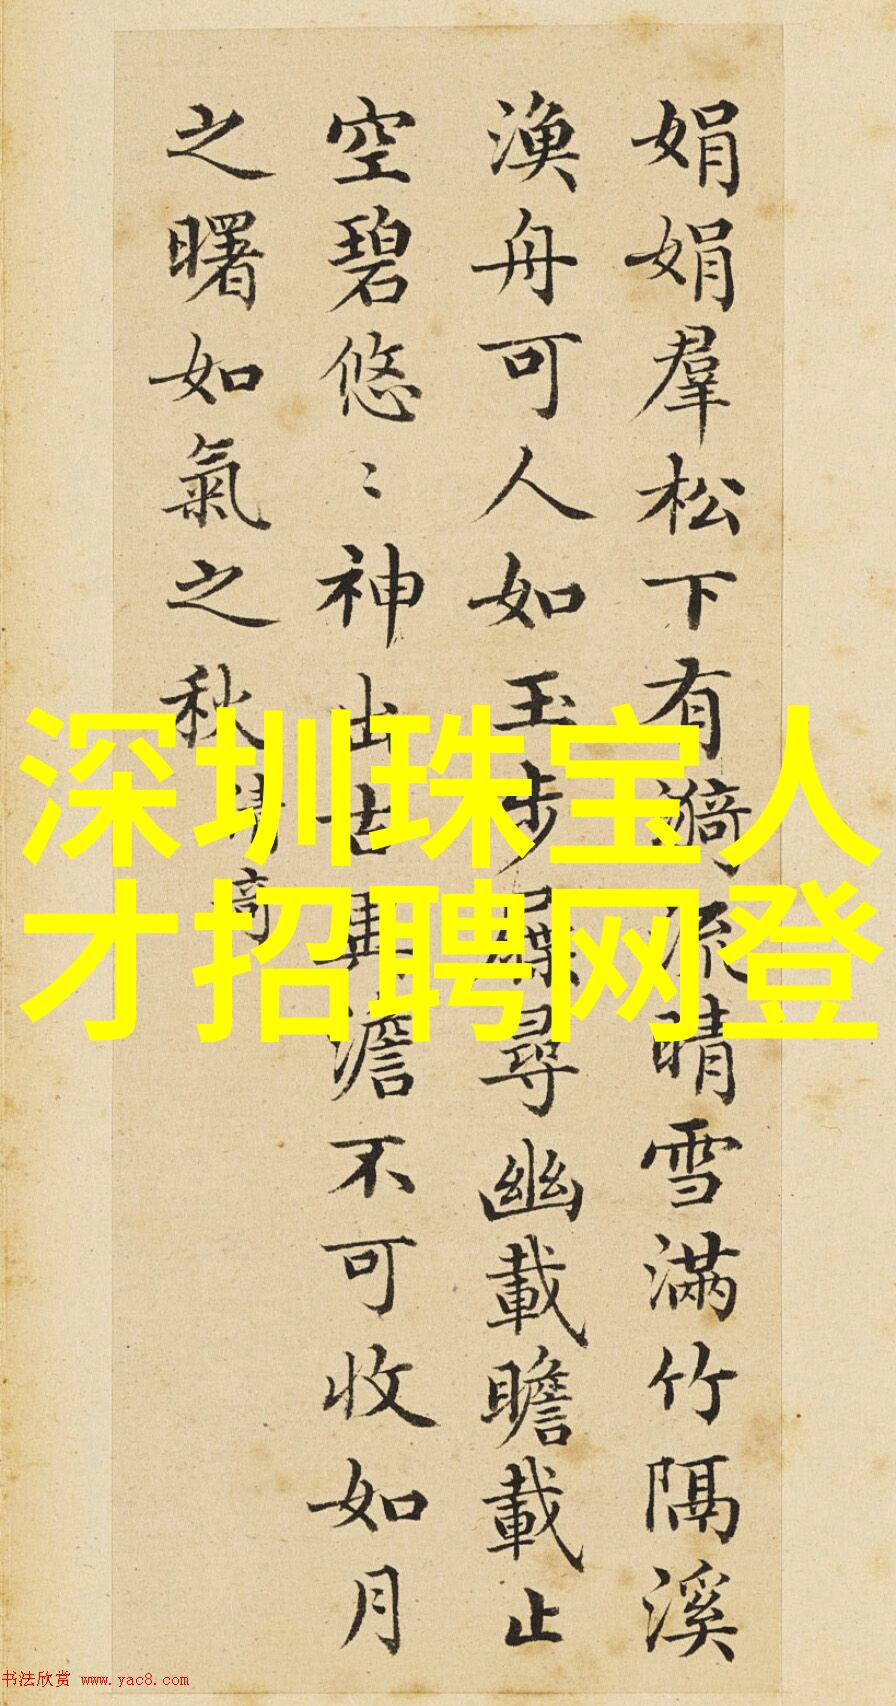 娟娟羣松下有漪流晴雪滿竹隔溪
漁舟可人如玉步屧尋幽載瞻載止
空碧悠〻神出古異澹不可收如月
之曙如氣之秋 清奇
深圳珠宝人
才招聘网登
书法欣赏 www.yac8.com